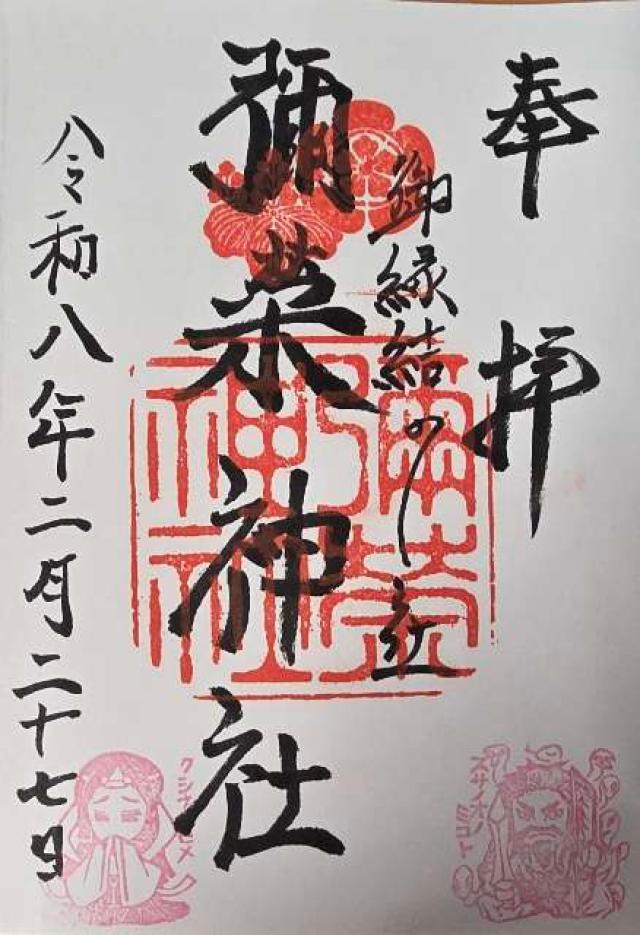 奉拝
御縁結の社
彌榮神社
彌榮神社
令和八年二月二十七日
スサノオノミコト
クシナダヒメ